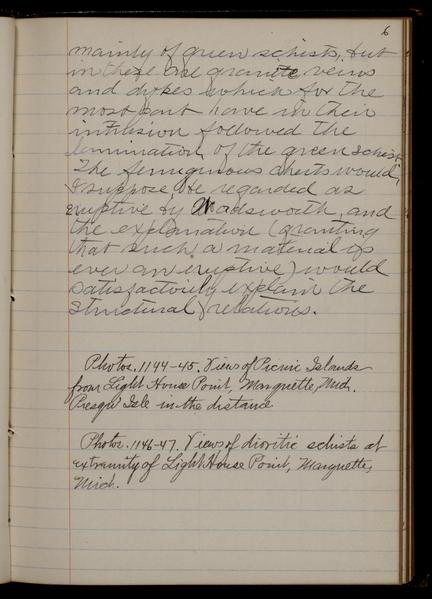 6
mainly of green schists, but
in these are granite veins
and dykes which for the
most part have in their
intrusion followed the
lamination of the green schist.
The ferruginous cherts would,
I suppose, be regarded as
eruptive by Wadsworth, and
the explanation (granting
that such a material is
ever an eruptive) would
satisfactorily explain the
structural relations.
Photos. 1144-45. Views of Picnic Islands
from Light House Point, Marquette, Mich.
Presqu' Isle in the distance
Photos. 1146-47. Views of dioritic schists at
extremity of Light House Point, Marquette,
Mich.